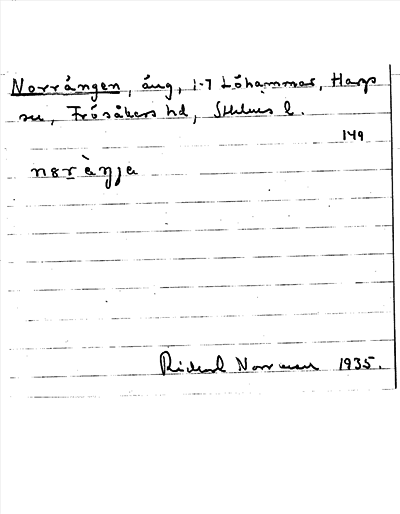 Norrängen, äng, 1-7 Löhammar, Harg
sn, Frösåkers hd, Sthlms l.
149
nɷràŋja
Rickard Norrman 1935.